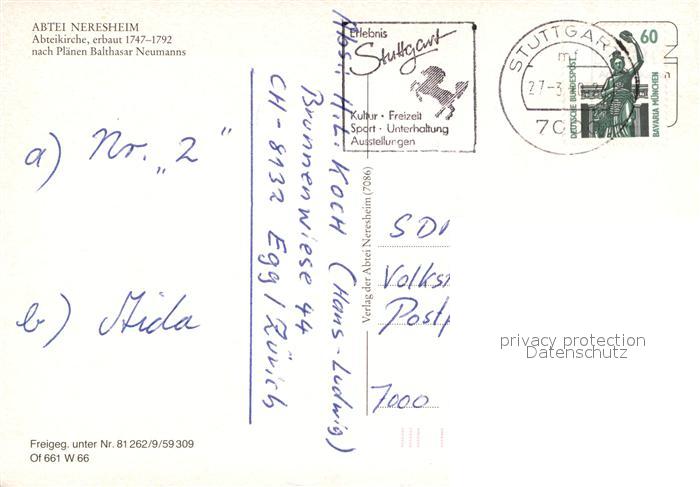 ABTEI NERESHEIM
Abteikirche, erbaut 1747–1792
nach Plänen Balthasar Neumanns
a) Nr. „2“
b) Aida
Freigeg. unter Nr. 81 262/9/59 309
Of 661 W 66
Abs.: H.L. KOCH (Hans-Ludwig)
Brunnenwiese 44
CH-8132 Egg/Zürich
Verlag der Abtei Neresheim (7086)
Erlebnis
Stuttgart
Kultur · Freizeit
Sport · Unterhaltung
Ausstellungen
STUTTGART
mf
27-3
60
DEUTSCHE BUNDESPOST
BAVARIA MÜNCHEN
SD
Volks
Post
7000
privacy protection
Datenschutz